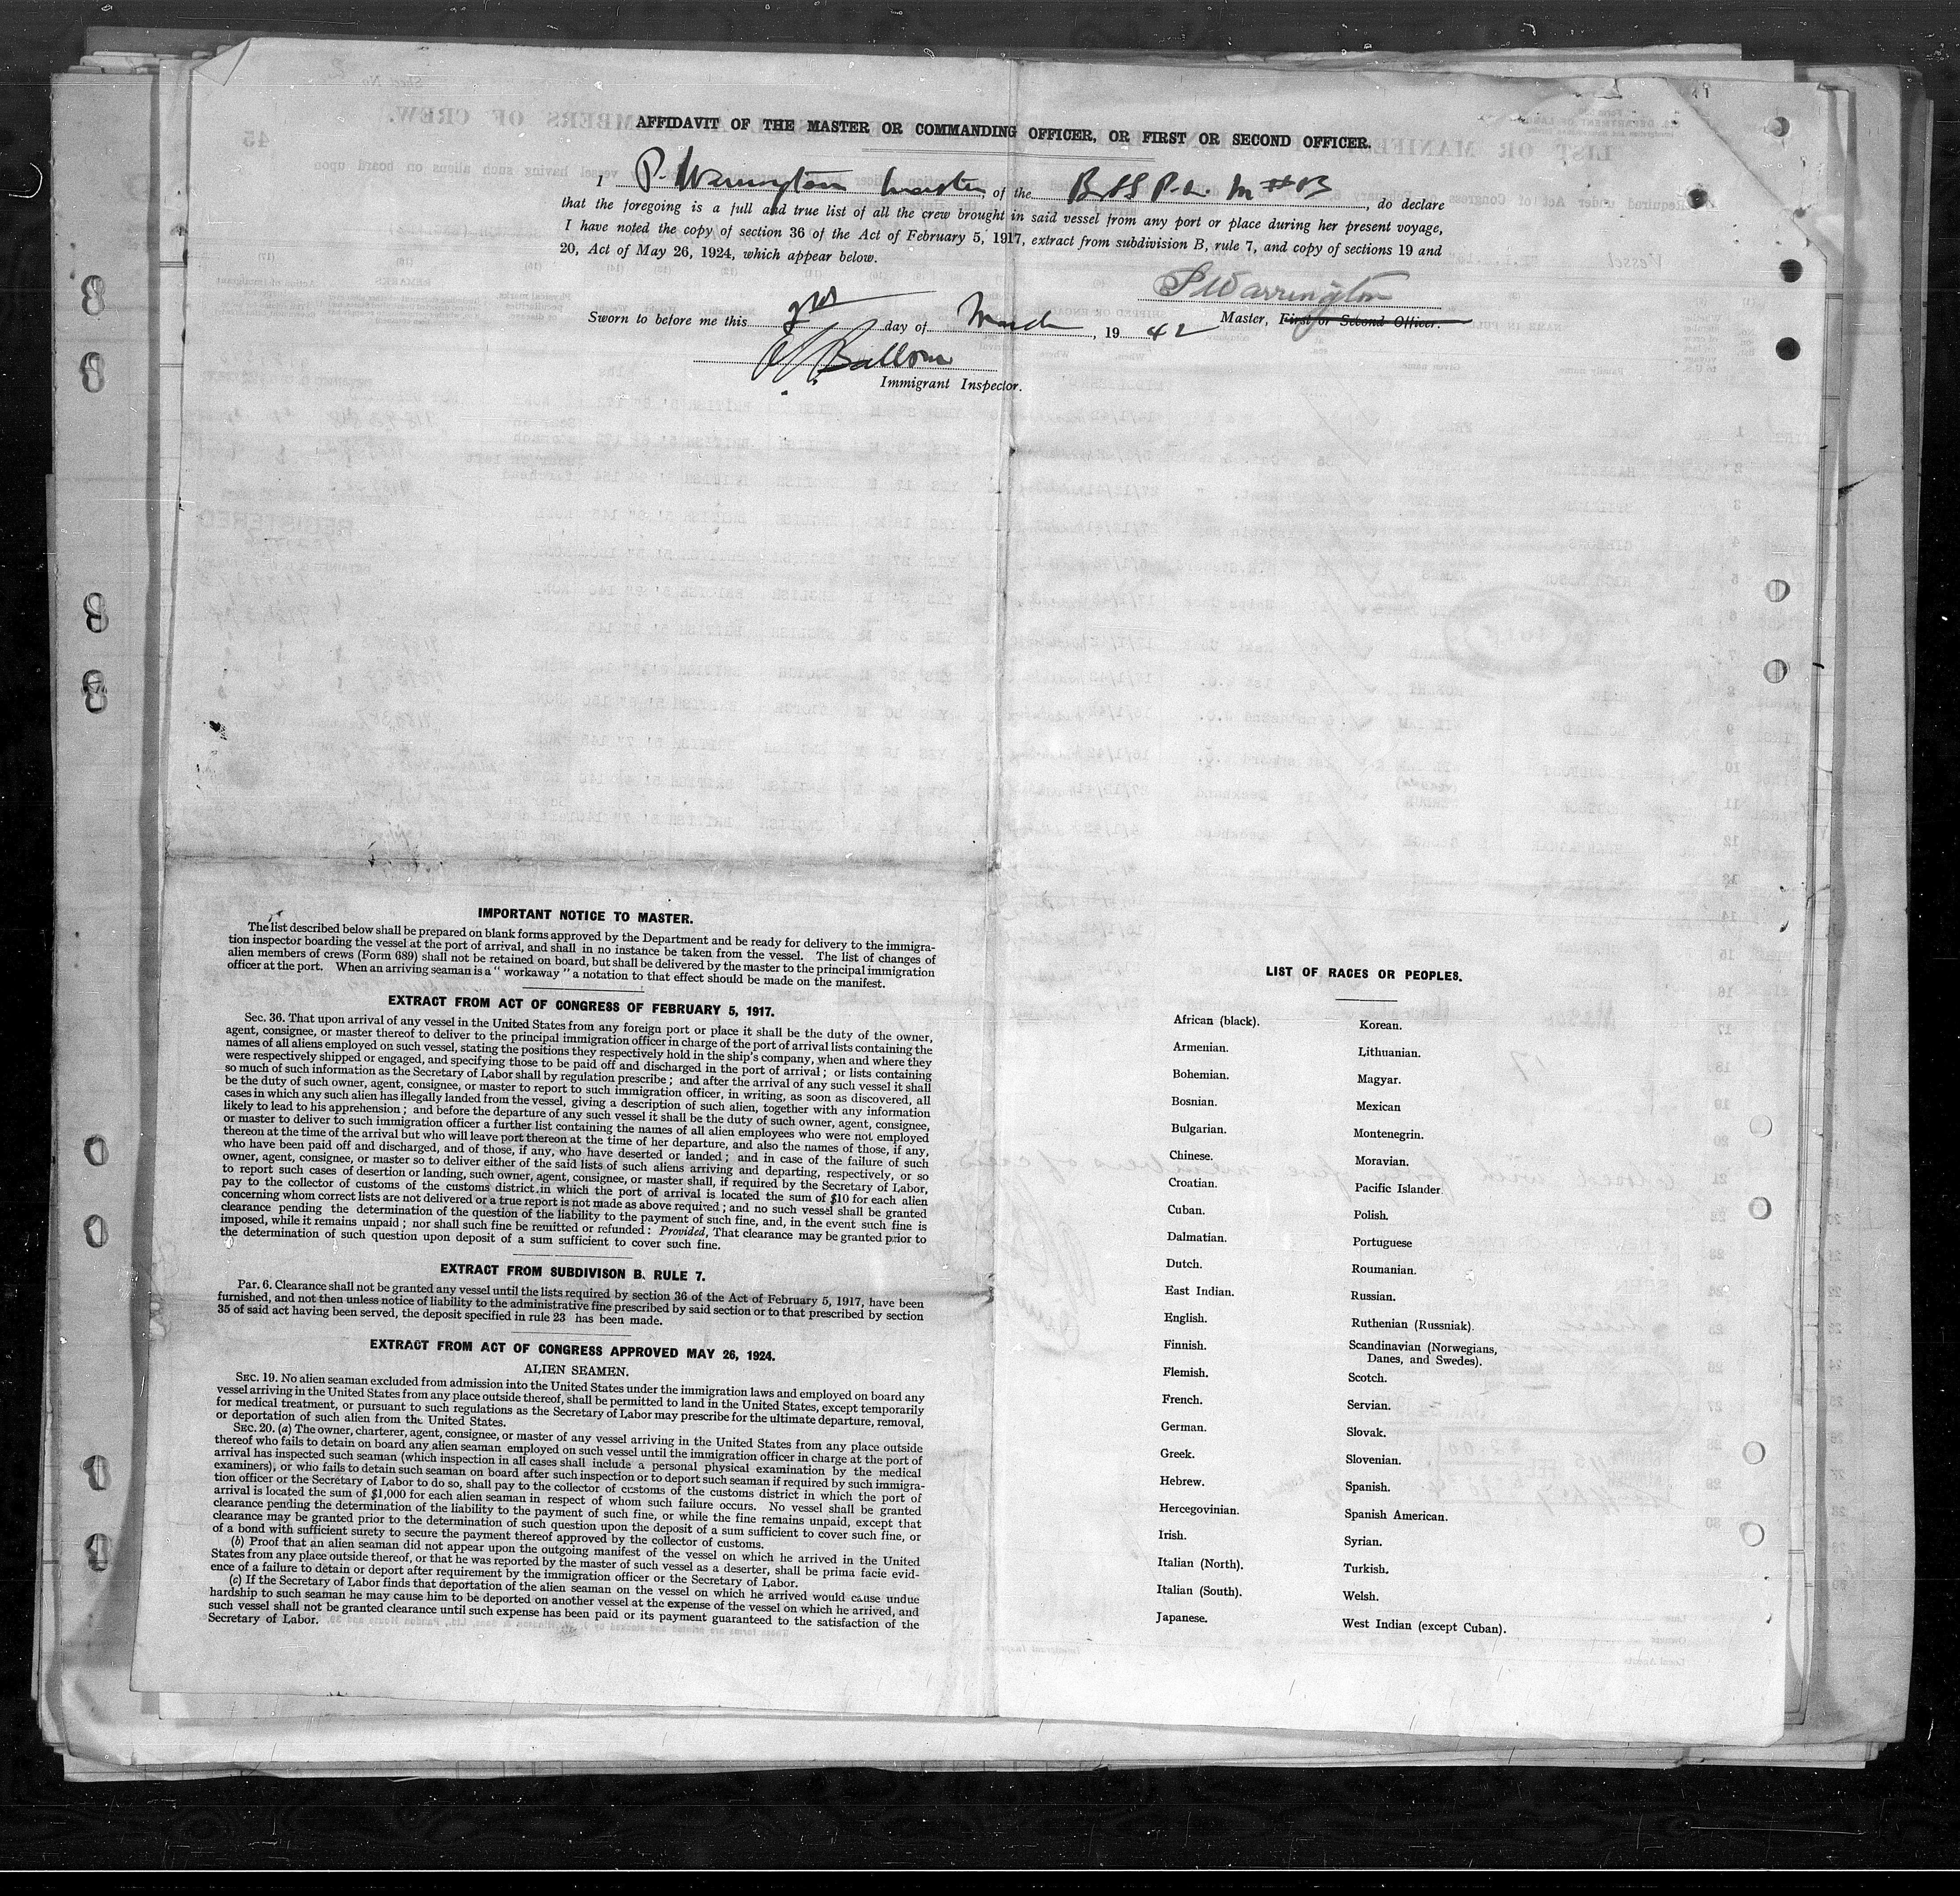 AFFIDAVIT OF THE MASTER OR COMMANDING OFFICER, OR FIRST OR SECOND OFFICER.
I P. Warrington Master, of the , do declare
that the foregoing is a full and true list of all the crew brought in said vessel from any port or place during her present voyage,
I have noted the copy of section 36 of the Act of February 5, 1917, extract from subdivision B, rule 7, and copy of sections 19 and
20, Act of May 26, 1924, which appear below.
Warrington
Master, First or Second Officer.
Sworn to before me this day of March, 19 42
Immigrant Inspector.
IMPORTANT NOTICE TO MASTER.
The list described below shall be prepared on blank forms approved by the Department and be ready for delivery to the immigra-
tion inspector boarding the vessel at the port of arrival, and shall in no instance be taken from the vessel. The list of changes of
alien members of crews (Form 689) shall not be retained on board, but shall be delivered by the master to the principal immigration
officer at the port. When an arriving seaman is a " workaway " a notation to that effect should be made on the manifest.
EXTRACT FROM ACT OF CONGRESS OF FEBRUARY 5, 1917.
Sec. 36. That upon arrival of any vessel in the United States from any foreign port or place it shall be the duty of the owner,
agent, consignee, or master thereof to deliver to the principal immigration officer in charge of the port of arrival lists containing the
names of all aliens employed on such vessel, stating the positions they respectively hold in the ship's company, when and where they
were respectively shipped or engaged, and specifying those to be paid off and discharged in the port of arrival ; or lists containing
so much of such information as the Secretary of Labor shall by regulation prescribe ; and after the arrival of any such vessel it shall
be the duty of such owner, agent, consignee, or master to report to such immigration officer, in writing, as soon as discovered, all
cases in which any such alien has illegally landed from the vessel, giving a description of such alien, together with any information
likely to lead to his apprehension ; and before the departure of any such vessel it shall be the duty of such owner, agent, consignee,
or master to deliver to such immigration officer a further list containing the names of all alien employees who were not employed
thereon at the time of the arrival but who will leave port thereon at the time of her departure, and also the names of those, if any,
who have been paid off and discharged, and of those, if any, who have deserted or landed ; and in case of the failure of such
owner, agent, consignee, or master so to deliver either of the said lists of such aliens arriving and departing, respectively, or so
to report such cases of desertion or landing, such owner, agent, consignee, or master shall, if required by the Secretary of Labor,
pay to the collector of customs of the customs district in which the port of arrival is located the sum of $10 for each alien
concerning whom correct lists are not delivered or a true report is not made as above required ; and no such vessel shall be granted
clearance pending the determination of the question of the liability to the payment of such fine, and, in the event such fine is
imposed, while it remains unpaid ; nor shall such fine be remitted or refunded : Provided, That clearance may be granted prior to
the determination of such question upon deposit of a sum sufficient to cover such fine.
EXTRACT FROM SUBDIVISON B. RULE 7.
Par. 6. Clearance shall not be granted any vessel until the lists required by section 36 of the Act of February 5, 1917, have been
furnished, and not then unless notice of liability to the administrative fine prescribed by said section or to that prescribed by section
35 of said act having been served, the deposit specified in rule 23 has been made.
EXTRACT FROM ACT OF CONGRESS APPROVED MAY 26, 1924.
ALIEN SEAMEN.
SEC. 19. No alien seaman excluded from admission into the United States under the immigration laws and employed on board any
vessel arriving in the United States from any place outside thereof, shall be permitted to land in the United States, except temporarily
for medical treatment, or pursuant to such regulations as the Secretary of Labor may prescribe for the ultimate departure, removal,
or deportation of such alien from the United States.
SEC. 20. (a) The owner, charterer, agent, consignee, or master of any vessel arriving in the United States from any place outside
thereof who fails to detain on board any alien seaman employed on such vessel until the immigration officer in charge at the port of
arrival has inspected such seaman (which inspection in all cases shall include a personal physical examination by the medical
examiners), or who fails to detain such seaman on board after such inspection or to deport such seaman if required by such immigra-
tion officer or the Secretary of Labor to do so, shall pay to the collector of customs of the customs district in which the port of
arrival is located the sum of $1,000 for each alien seaman in respect of whom such failure occurs. No vessel shall be granted
clearance pending the determination of the liability to the payment of such fine, or while the fine remains unpaid, except that
clearance may be granted prior to the determination of such question upon the deposit of a sum sufficient to cover such fine, or
of a bond with sufficient surety to secure the payment thereof approved by the collector of customs.
(b) Proof that an alien seaman did not appear upon the outgoing manifest of the vessel on which he arrived in the United
States from any place outside thereof, or that he was reported by the master of such vessel as a deserter, shall be prima facie evid-
ence of a failure to detain or deport after requirement by the immigration officer or the Secretary of Labor.
(c) If the Secretary of Labor finds that deportation of the alien seaman on the vessel on which he arrived would cause undue
hardship to such seaman he may cause him to be deported on another vessel at the expense of the vessel on which he arrived, and
such vessel shall not be granted clearance until such expense has been paid or its payment guaranteed to the satisfaction of the
Secretary of Labor.
LIST OF RACES OR PEOPLES.
African (black).
Armenian.
Bohemian.
Bosnian.
Bulgarian.
Chinese.
Croatian.
Cuban.
Dalmatian.
Dutch.
East Indian.
English.
Finnish.
Flemish.
French.
German.
Greek.
Hebrew.
Hercegovinian.
Irish.
Italian (North).
Italian (South).
Japanese.
Korean.
Lithuanian.
Magyar.
Mexican
Montenegrin.
Moravian.
Pacific Islander.
Polish.
Portuguese
Roumanian.
Russian.
Ruthenian (Russniak).
Scandinavian (Norwegians,
Danes, and Swedes).
Scotch.
Servian.
Slovak.
Slovenian.
Spanish.
Spanish American.
Syrian.
Turkish.
Welsh.
West Indian (except Cuban).